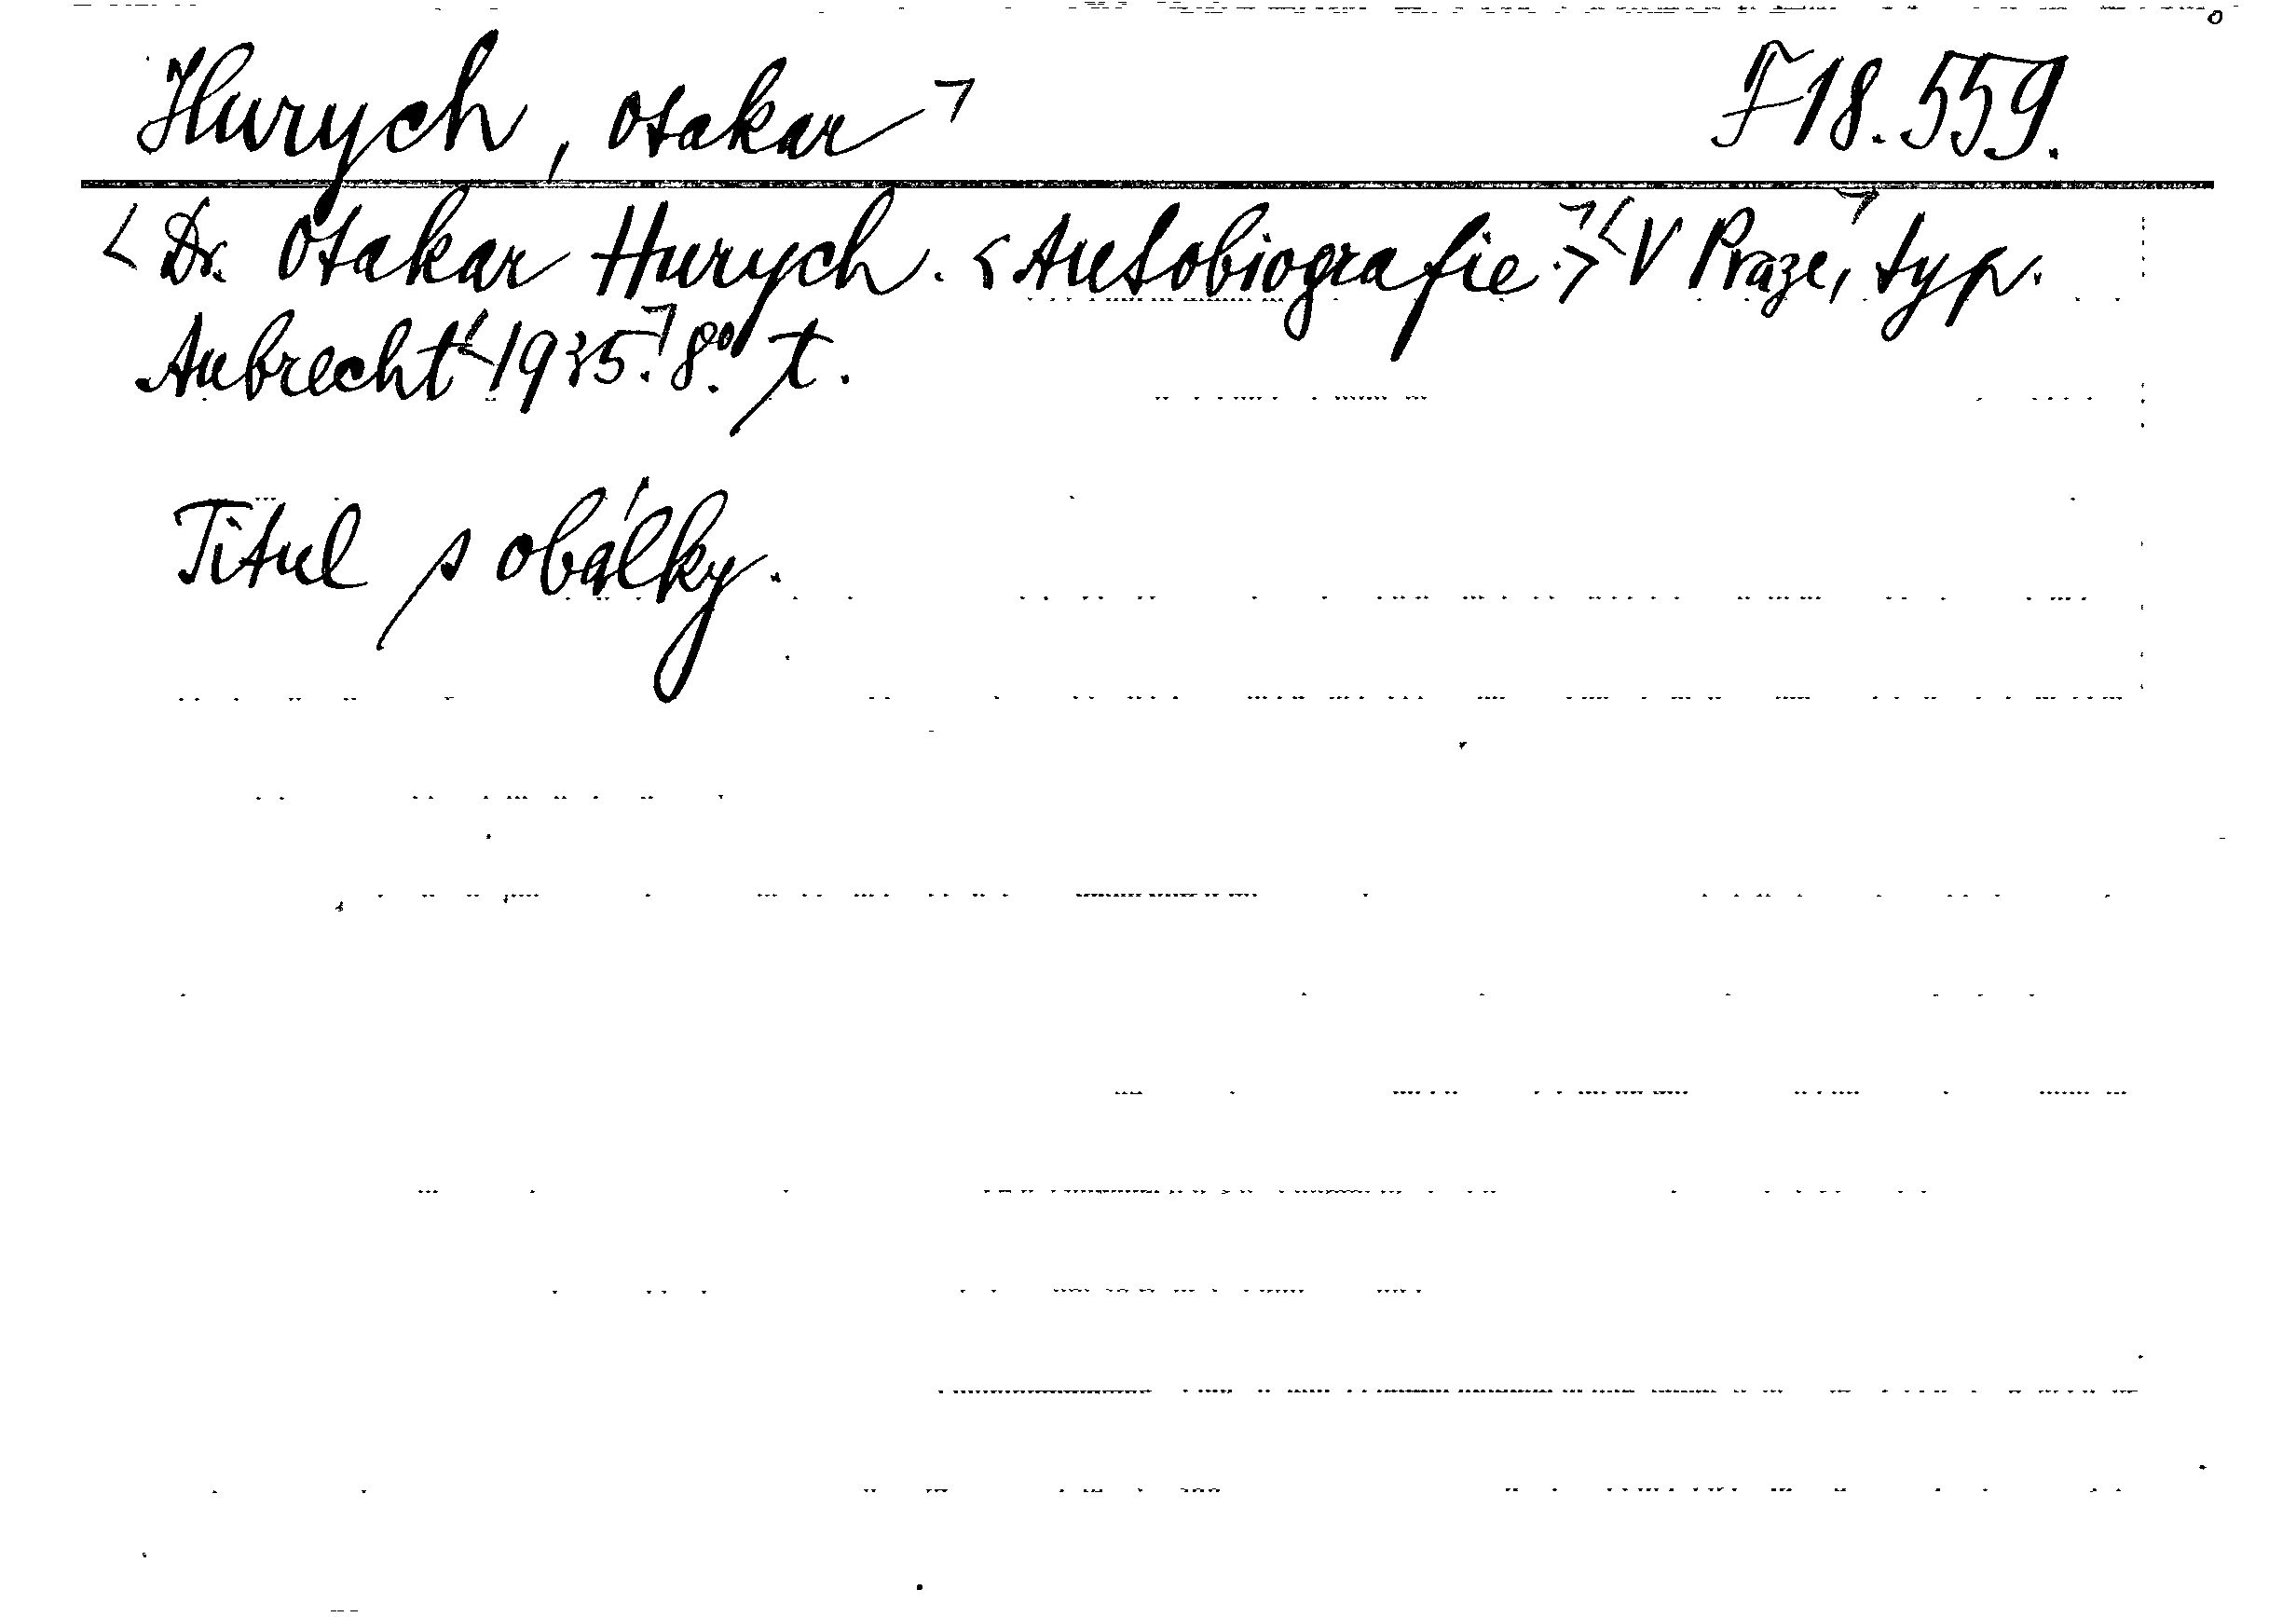 Hurych, Otakar ¬ F 18.559.
< Dr. Otakar Hurych. < Autobiografie.¬> < V Praze,¬ typ.
Aubrecht < 1935.¬ 8.° t.
Titul s obálky.